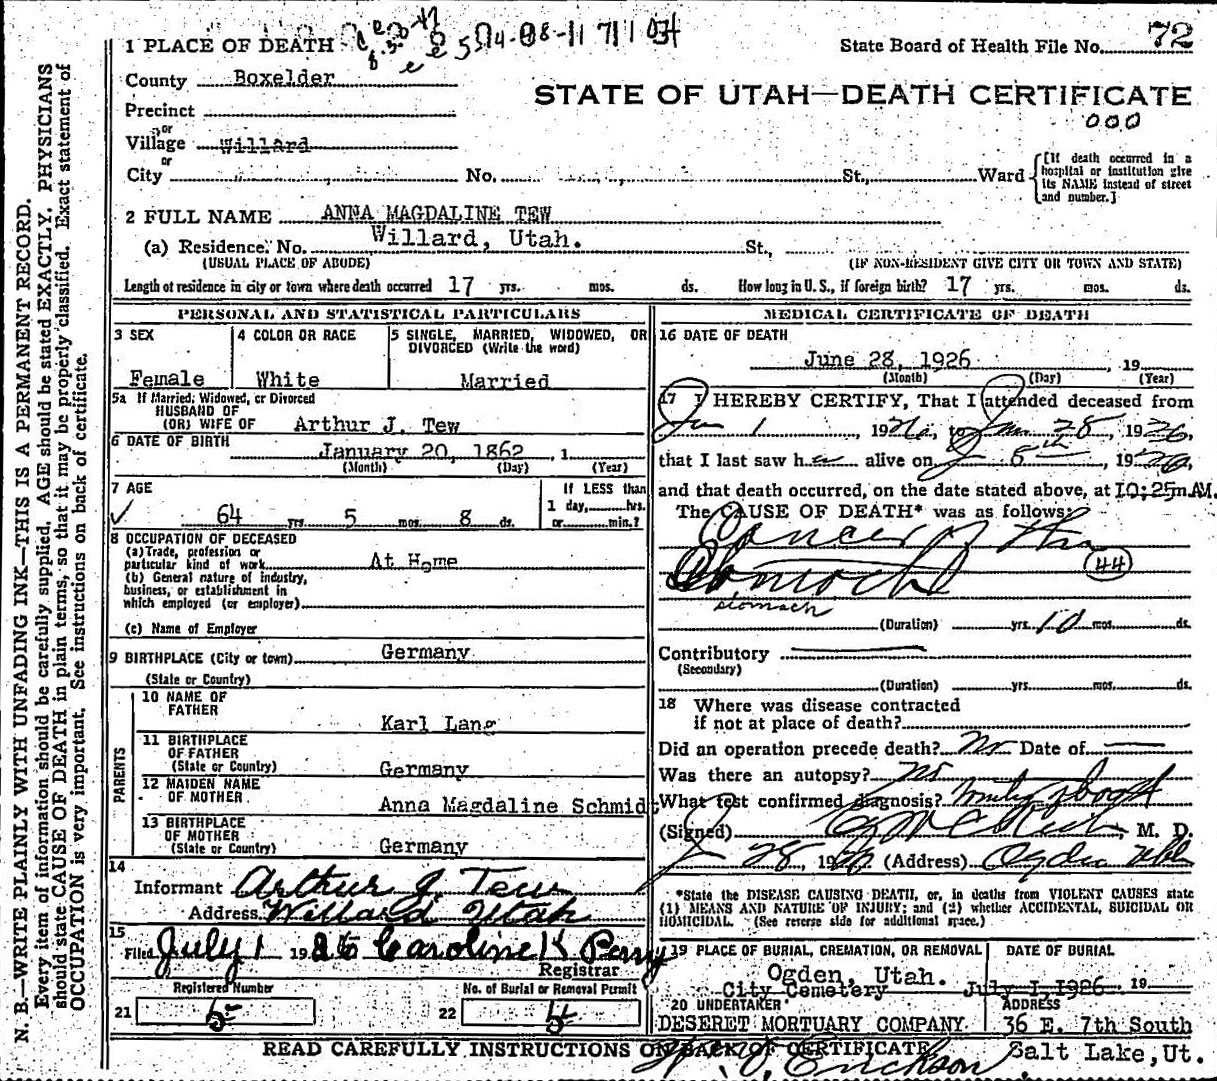 N. B.—WRITE PLAINLY WITH UNFADING INK—THIS IS A PERMANENT RECORD.
Every item of information should be carefully supplied. AGE should be stated EXACTLY. PHYSICIANS
should state CAUSE OF DEATH in plain terms, so that it may be properly classified. Exact statement of
OCCUPATION is very important. See instructions on back of certificate.
1 PLACE OF DEATH
State Board of Health File No. 72
County Boxelder
STATE OF UTAH—DEATH CERTIFICATE
000
Precinct
or
Village Willard
or
City No. St., Ward
[If death occurred in a
hospital or institution give
its NAME instead of street
and number.]
2 FULL NAME ANNA MAGDALINE TEW
(a) Residence, No. Willard, Utah. St.,
(USUAL PLACE OF ABODE) (IF NON-RESIDENT GIVE CITY OR TOWN AND STATE)
Length of residence in city or town where death occurred 17 yrs. mos. ds. How long in U. S., if foreign birth? 17 yrs. mos. ds.
PERSONAL AND STATISTICAL PARTICULARS
3 SEX
Female
4 COLOR OR RACE
White
5 SINGLE, MARRIED, WIDOWED, OR
DIVORCED (Write the word)
Married
5a If Married, Widowed, or Divorced
HUSBAND OF
(OR) WIFE OF Arthur J. Tew
6 DATE OF BIRTH
January 20, 1862, 1
(Month) (Day) (Year)
7 AGE
64 yrs. 5 mos. 8 ds.
If LESS than
1 day, hrs.
or min.?
8 OCCUPATION OF DECEASED
(a) Trade, profession or
particular kind of work At Home
(b) General nature of industry,
business, or establishment in
which employed (or employer)
(c) Name of Employer
9 BIRTHPLACE (City or town) Germany
(State or Country)
PARENTS
10 NAME OF
FATHER
Karl Lang
11 BIRTHPLACE
OF FATHER
(State or Country) Germany
12 MAIDEN NAME
OF MOTHER Anna Magdaline Schmidt
13 BIRTHPLACE
OF MOTHER
(State or Country) Germany
14
Informant Arthur J. Tew
Address Willard Utah
15
Filed July 1 1926 Caroline K Perry
Registrar
Registered Number
21 5
No. of Burial or Removal Permit
22 5
MEDICAL CERTIFICATE OF DEATH
16 DATE OF DEATH
June 28, 1926, 19
(Month) (Day) (Year)
17 I HEREBY CERTIFY, That I attended deceased from
Jun 1, 1926, to Jun 28, 1926,
that I last saw her alive on 8th, 1926,
and that death occurred, on the date stated above, at 10:25 m.AM.
The CAUSE OF DEATH* was as follows:
Cancer of the
Stomach
44
stomach
(Duration) yrs. 10 mos. ds.
Contributory
(Secondary)
(Duration) yrs. mos. ds.
18 Where was disease contracted
if not at place of death?
Did an operation precede death? No Date of
Was there an autopsy? No
What test confirmed diagnosis?
(Signed) M. D.
28, 1926 (Address) Ogden Utah
*State the DISEASE CAUSING DEATH, or, in deaths from VIOLENT CAUSES state
(1) MEANS AND NATURE OF INJURY; and (2) whether ACCIDENTAL, SUICIDAL OR
HOMICIDAL. (See reverse side for additional space.)
19 PLACE OF BURIAL, CREMATION, OR REMOVAL
Ogden, Utah.
City Cemetery
DATE OF BURIAL
July 1, 1926 19
20 UNDERTAKER
DESERET MORTUARY COMPANY
ADDRESS
36 E. 7th South
Salt Lake, Ut.
READ CAREFULLY INSTRUCTIONS ON BACK OF CERTIFICATE
Erickson